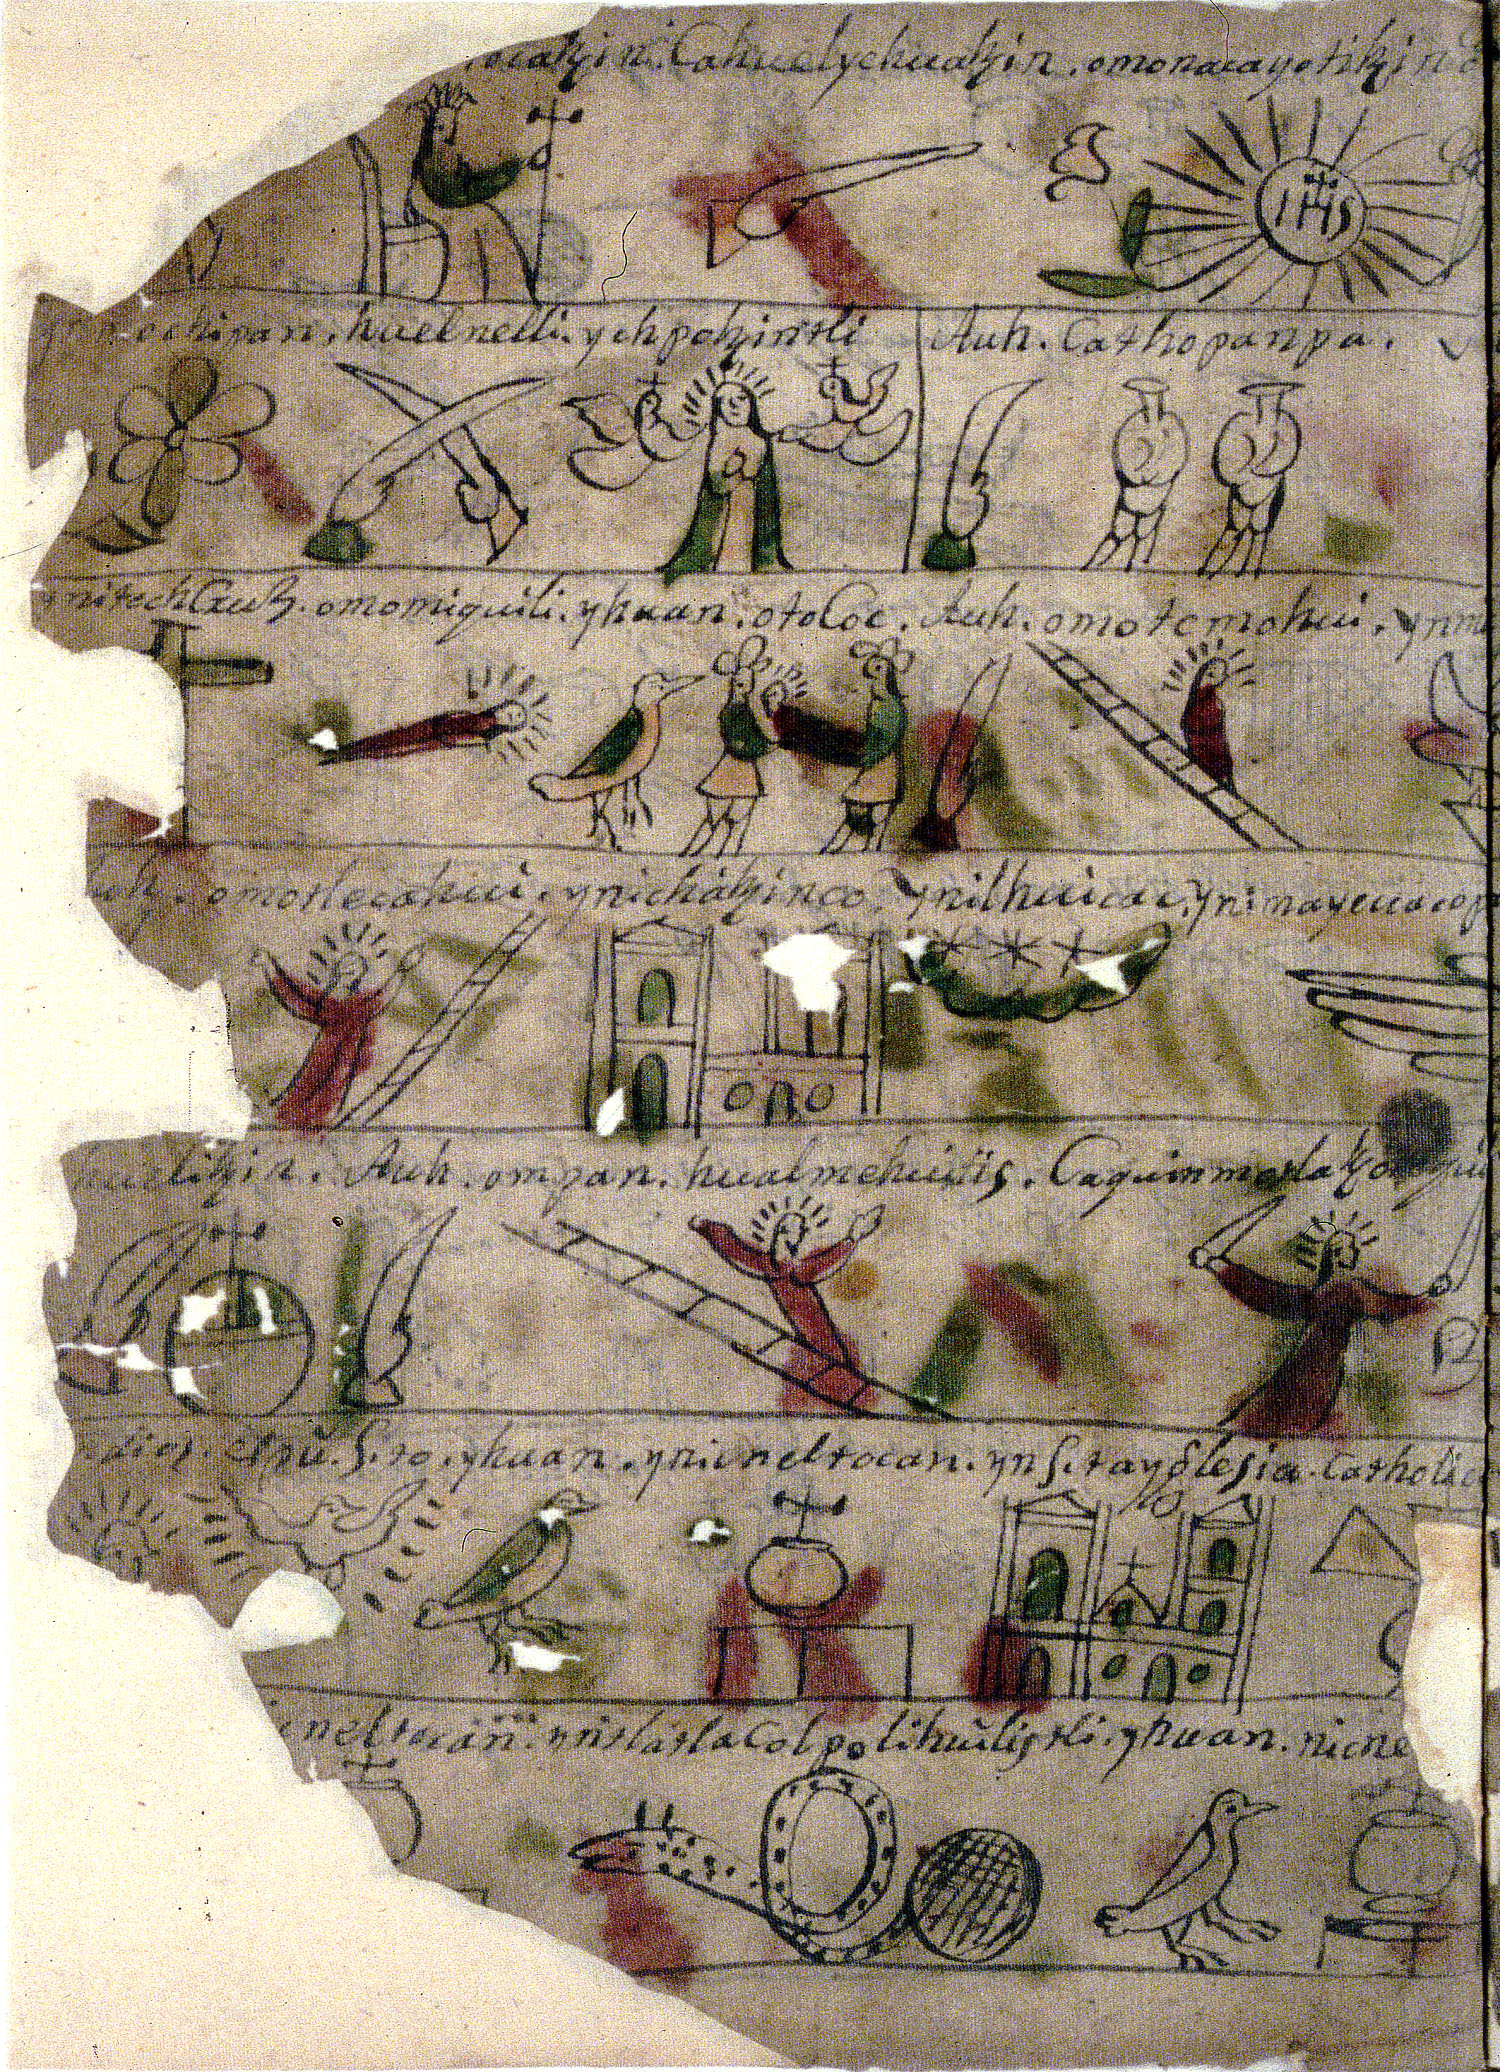 Cahuelyehuatzin. omonacayotitzin
IHS
ochipan. huelnelli. ychpotzintli Auh. Cathopanpa.
ynitech Cruz. omomiquili. yhuan. otoCoc. Auh. omotemohui. ynm
omotlecahui. ynichatzinco. ynilhuicac. ynimayecacop
huelitzin. Auh. ompan. hualmehuitis. Caquinmotla
dios. espũ. S.to. yhuan. ynicneltocan. yn S.tayglesia. Catholic
neltocan. yntlatlaColpolihuilistli. yhuan. nicne